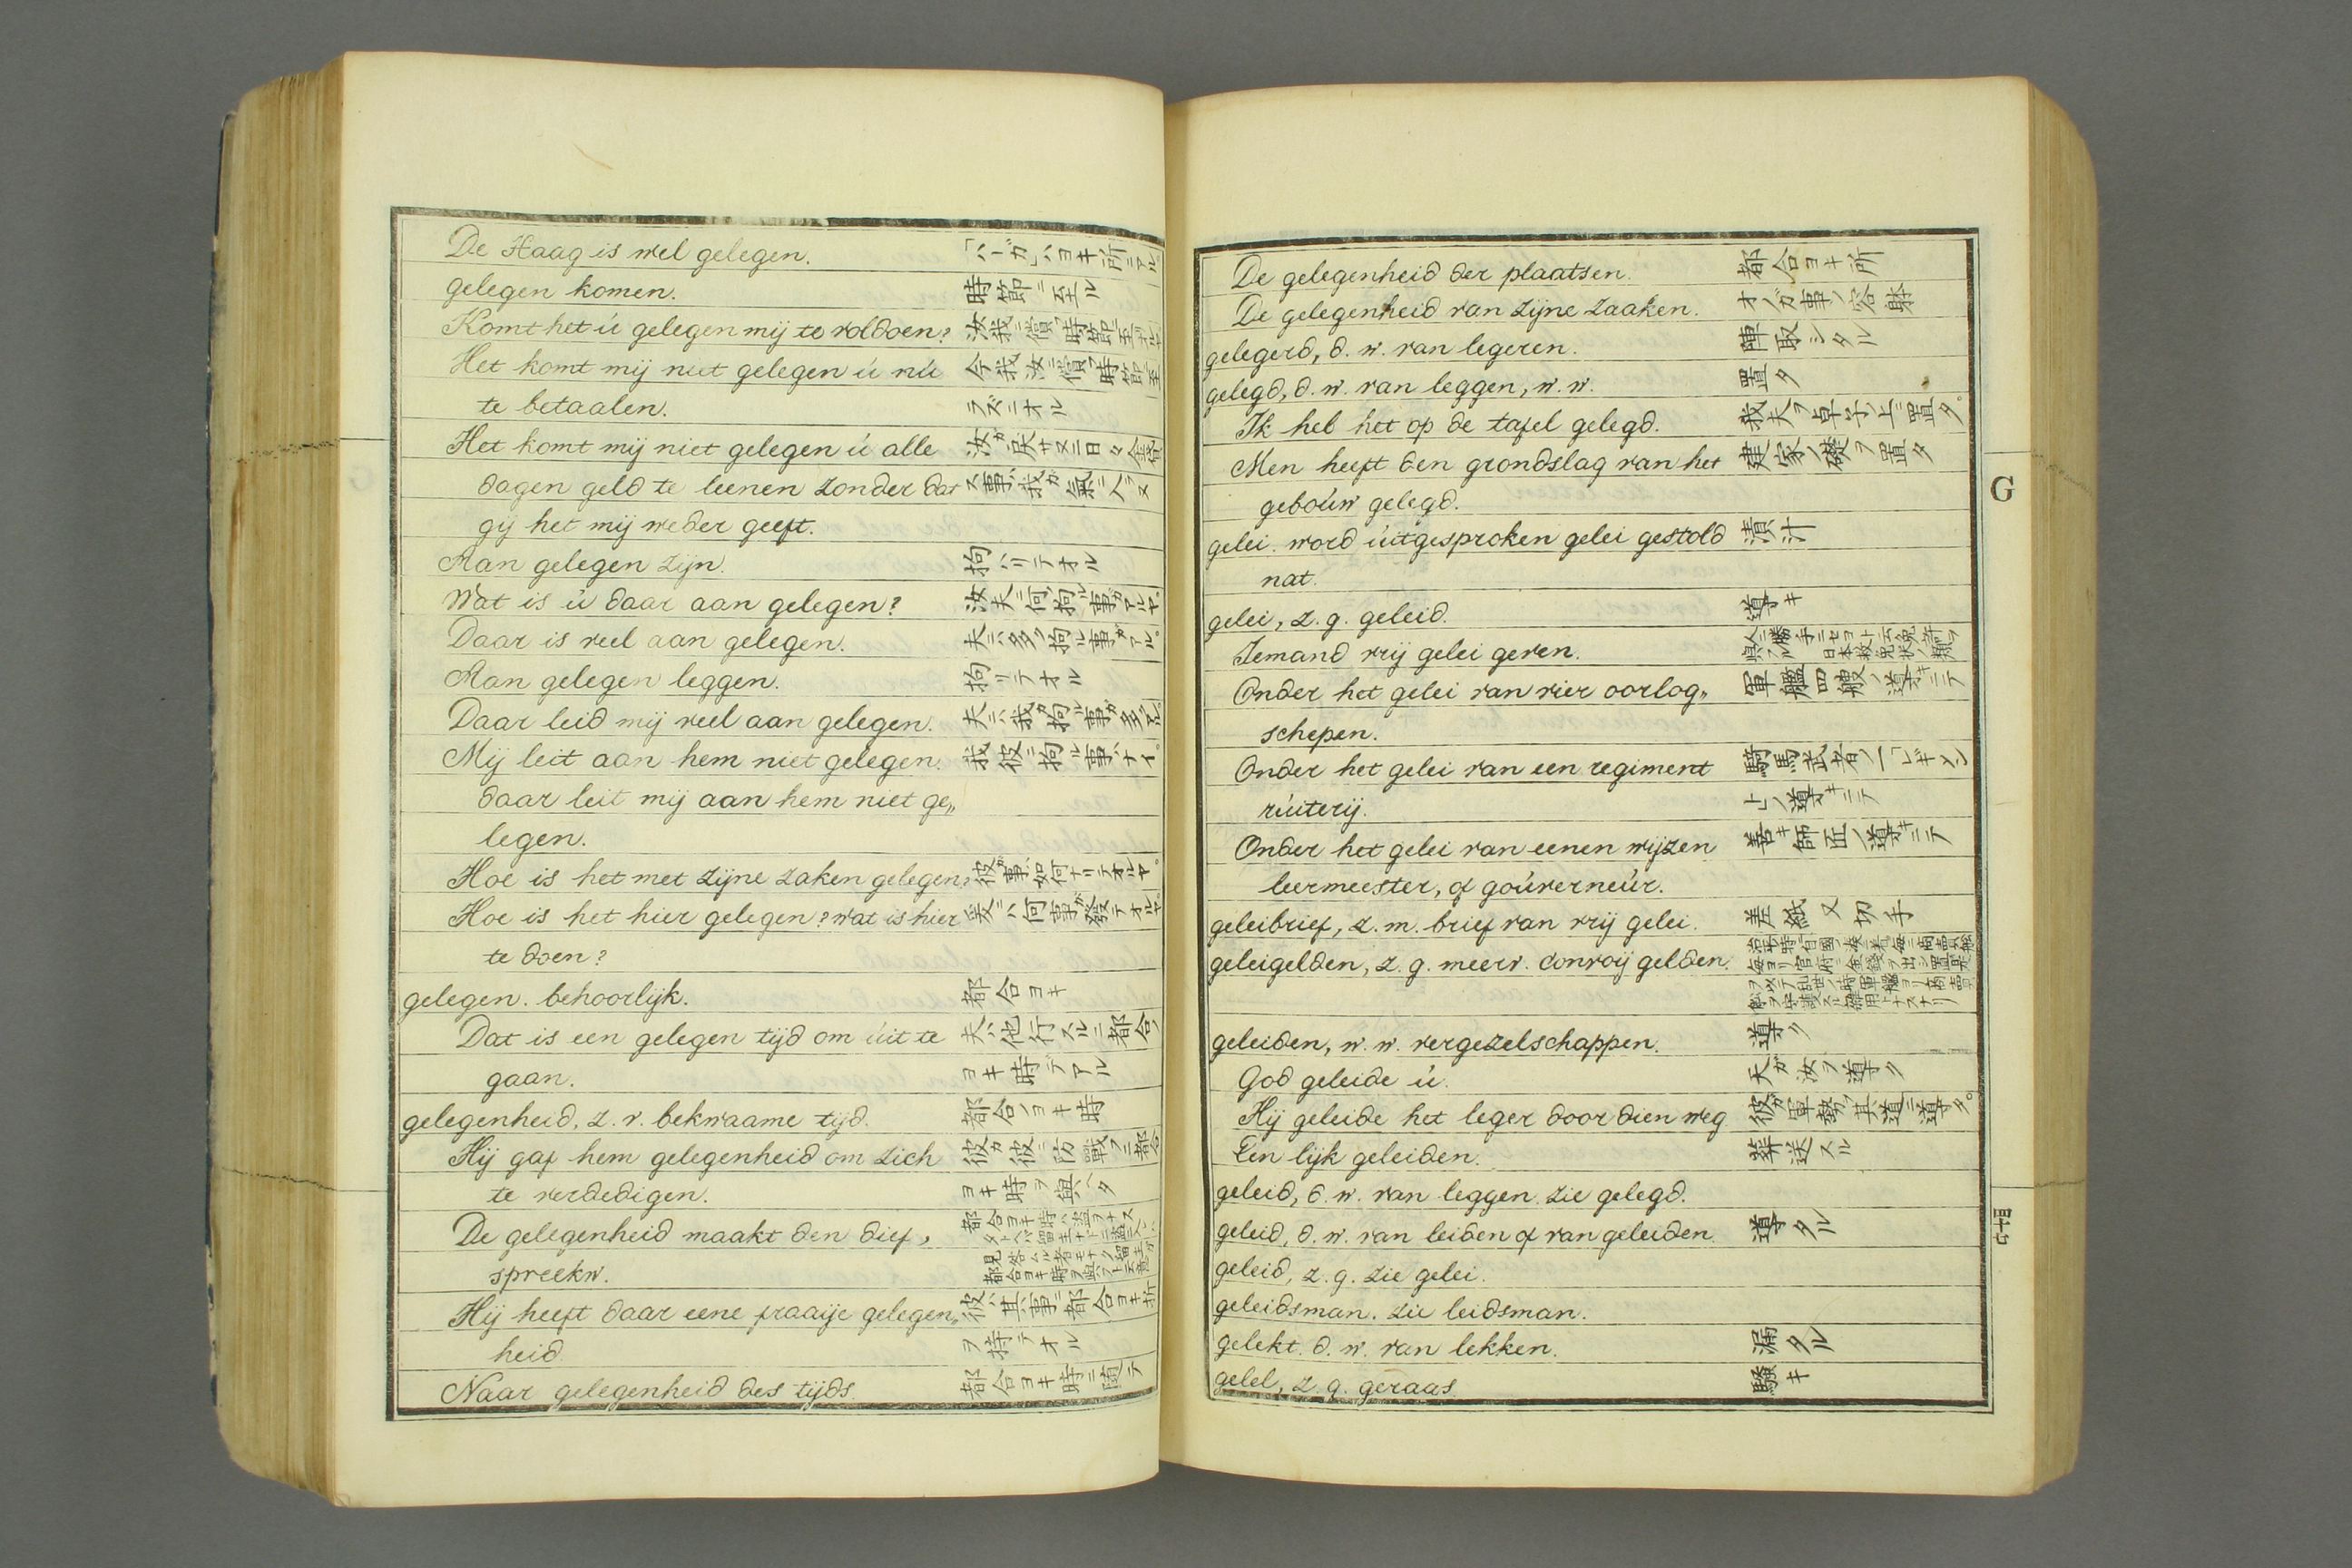 De Haag is wel gelegen. 「ハーガ」ハヨキ所ニアル
gelegen komen. 時節ニ至ル
Komt het ú gelegen mij te voldoen? 汝我ニ償フ時節ニ至
Het komt mij niet gelegen ú nú 今我汝ニ償フ時節ニ至
te betaalen. ラズニオル
Het komt mij niet gelegen ú alle 汝ガ戻サヌニ日々金
dagen geld te leenen zonder dat ス事ハ我ガ氣ニ入ラヌ
gij het mij weder geeft.
Aan gelegen zijn. 拘ハリテオル
Wat is ú daar aan gelegen? 汝夫ニ何ノ拘ル事ガアルヤ
Daar is veel aan gelegen. 夫ニハ多ク拘ル事ガアル。
Aan gelegen leggen. 拘リテオル
Daar leid mij veel aan gelegen. 夫ニハ我ガ拘ル事ガ多
Mij leit aan hem niet gelegen. 我彼ニ拘ル事ハナイ。
daar leit mij aan hem niet ge„
legen.
Hoe is het met zijne zaken gelegen? 彼ガ事ハ如何ナリテオルヤ。
Hoe is het hier gelegen? wat is hier 爰ニハ何事ガ發テオルヤ
te doen?
gelegen. behoorlijk. 都合ヨキ
Dat is een gelegen tijd om úit te 夫ハ他行スルニ都合ノ
gaan. ヨキ時デアル
gelegenheid, z. v. bekwaame tijd. 都合ノヨキ時
Hij gaf hem gelegenheid om zich 彼ガ彼ニ防戰フニ都合
te verdedigen. ヨキ時ヲ與ヘタ
De gelegenheid maakt den dief, 都合ヨキ時ハ盗ヲナス
spreekw.
Hij heeft daar eene fraaije gelegen„ 彼ハ其事ニ都合ヨキ折
heid. ヲ持テオル
Naar gelegenheid des tijds. 都合ヨキ時ニ随テ
De gelegenheid der plaatsen. 都合ヨキ所
De gelegenheid van zijne zaaken. オノガ事ノ容躰
gelegerd, d. w. van legeren. 陣取シタル
gelegd, d. w. van leggen, w. w. 置タ
Ik heb het op de tafel gelegd. 我夫ヲ卓子ノ上ニ置タ。
Men heeft den grondslag van het 建家ノ礎ヲ置タ
geboúw gelegd.
gelei. word úitgesproken gelei gestold 漬汁
nat.
gelei, z. g. geleid. 導キ
Iemand vrij gelei geven.
Onder het gelei van vier oorlog„ 軍艦四艘ノ導キニテ
schepen.
Onder het gelei van een regiment 騎馬武者ノ一「レギメン
rúiterij. ト」ノ導キニテ
Onder het gelei van eenen wijzen 善キ師匠ノ導キニテ
leermeester, of goúverneúr.
geleibrief, z. m. brief van vrij gelei. 差紙又切手
geleigelden, z. g. meerv. convoij gelden.
geleiden, w. w. vergezelschappen. 導ク
God geleide ú. 天ガ汝ヲ導ク
Hij geleide het leger door dien weg 彼ガ軍勢ヲ其道ニ導タ。
Een lijk geleiden. 葬送スル
geleid, d. w. van leggen. zie gelegd.
geleid, d. w. van leiden of van geleiden 導タル
geleid, z. g. zie gelei.
geleidsman. zie leidsman.
gelekt. d. w. van lekken. 漏タル
gelel, z. g. geraas 騒キ
G